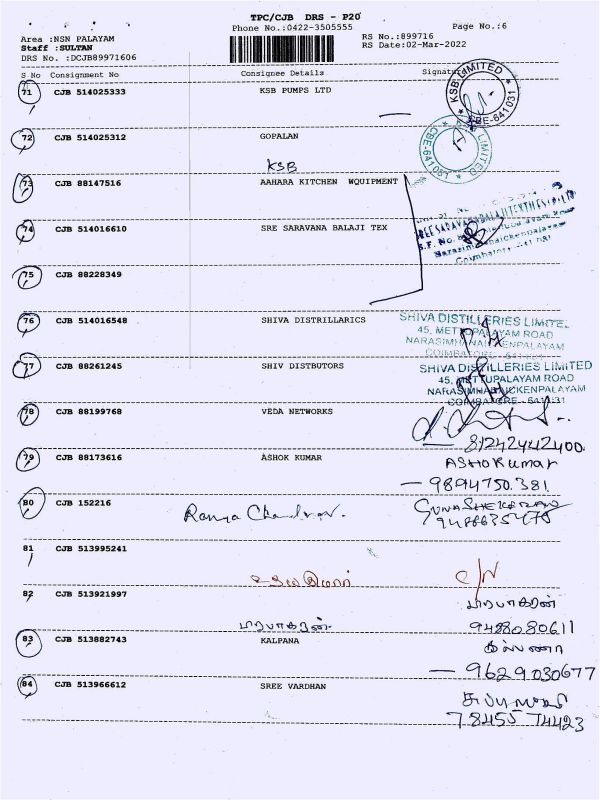 TPC/CJB DRS - P20
Phone No.:0422-3505555
Page No.:6
Area :NSN PALAYAM
RS No.:899716
Staff :SULTAN
RS Date:02-Mar-2022
DRS No. :DCJB89971606
S No Consignment No Consignee Details Signature
71 CJB 514025333 KSB PUMPS LTD
KSB LIMITED
CBE-641031
72 CJB 514025312 GOPALAN
LIMITED
KSB
73 CJB 88147516 AAHARA KITCHEN WQUIPMENT
74 CJB 514016610 SRE SARAVANA BALAJI TEX
75 CJB 88228349
76 CJB 514016548 SHIVA DISTRILLARICS
SHIVA DISTILLERIES LIMITED
45, METTUPALAYAM ROAD
NARASIMHANAICKENPALAYAM
77 CJB 88261245 SHIV DISTBUTORS
SHIVA DISTILLERIES LIMITED
45, METTUPALAYAM ROAD
NARASIMHANAICKENPALAYAM
COIMBATORE - 641031
78 CJB 88199768 VEDA NETWORKS
81242442400
79 CJB 88173616 ASHOK KUMAR
ASHOKumar
9894750.381
80 CJB 152216
81 CJB 513995241
C/N
82 CJB 513921997
பிரபாகரன்
பிரபாகரன்
9488080611
83 CJB 513882743 KALPANA
கல்பனா
9629030677
84 CJB 513966612 SREE VARDHAN
78455 74423